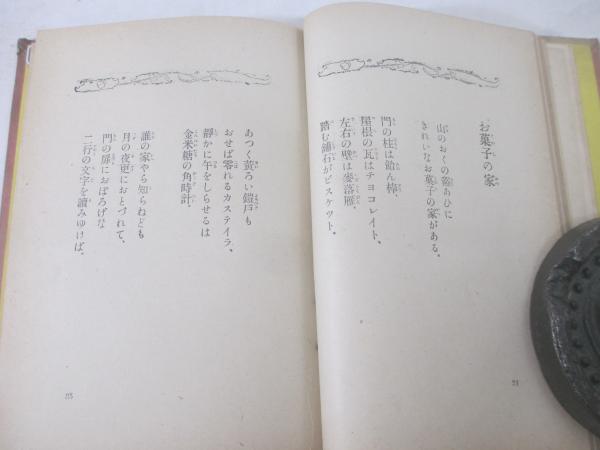 お菓子の家
山のおくの谿あひに
きれいなお菓子の家がある。
門の柱は飴ん棒、
屋根の瓦はチヨコレイト、
左右の壁は麥落雁、
踏む鋪石がビスケツト。
あつく黄ろい鎧戸も
おせば零れるカステイラ、
靜かに午をしらせるは
金米糖の角時計。
誰の家やら知らねども
月の夜更におとづれて、
門の扉におぼろげな
二行の文字を讀みゆけば、